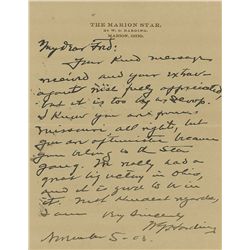 THE MARION STAR.
BY W. G. HARDING.
MARION, OHIO.
My dear Ford:
Your kind message
received and your extrav-
agant is fully appreciated,
but it is too big a scoop.
I know you are from
Missouri, all right, but
you are optimistic because
you belong to the Star
gang. We really had a
great big victory in Ohio,
and it is good to be in
it. With kindest regards,
I am Very Sincerely
W G Harding
November 5-03.